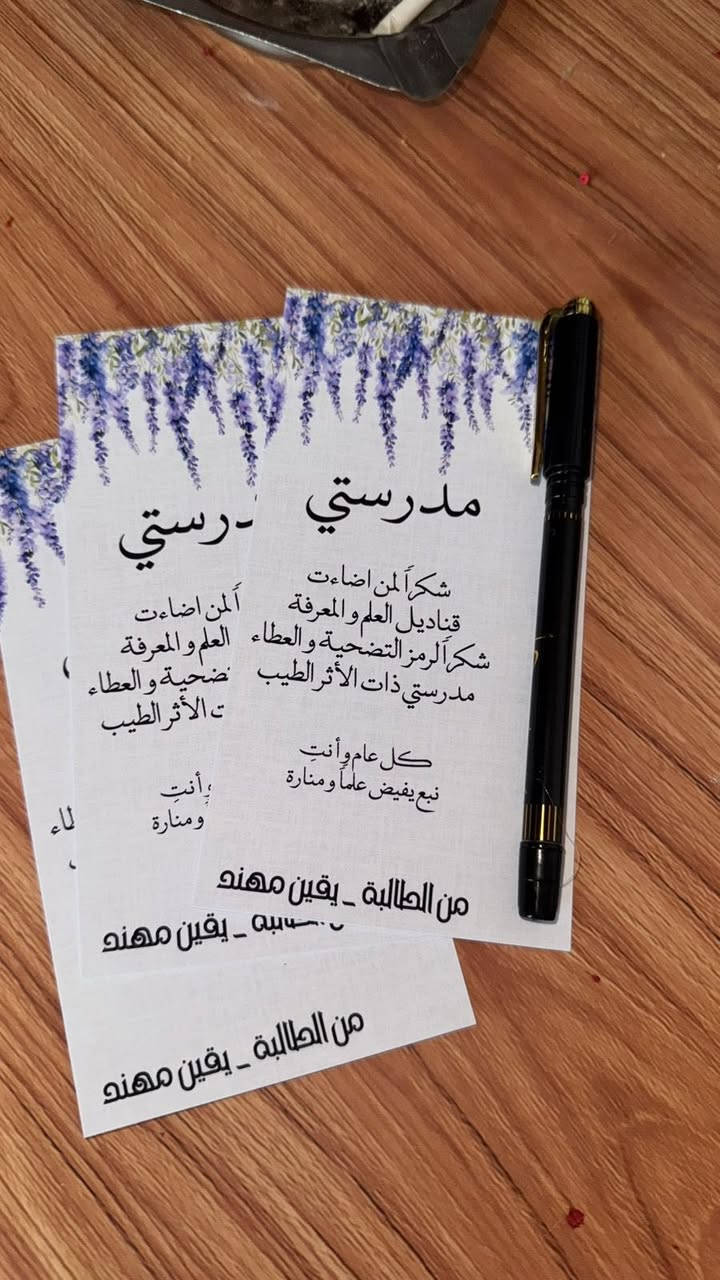 مدرستي
شكراً لمن اضاءت
قناديل العلم والمعرفة
شكراً لرمز التضحية والعطاء
مدرستي ذات الأثر الطيب
كل عام وأنتِ
نبع يفيض علماً ومنارة
من الطالبة _ يقين مهند
درستي
اً لمن اضاءت
العلم والمعرفة
تضحية والعطاء
ت الأثر الطيب
وأنتِ
ومنارة
من الطالبة _ يقين مهند
طاء
من الطالبة _ يقين مهند